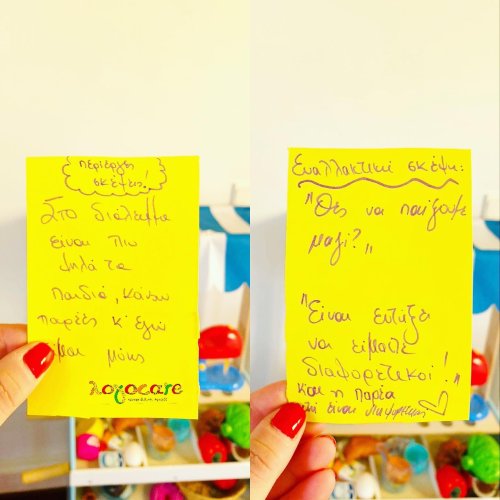 περίεργες
σκέψεις!
Στο διάλειμμα
είναι πιο
ψηλά τα
παιδιά, κάνουν
παρέες κ' εγώ
είμαι μόνος
λογοcare
Εναλλακτική σκέψη:
"Θες να παίξουμε
μαζί?"
"Είναι εντάξει
να είμαστε
διαφορετικοί!"
και η παρέα
είναι διαφορετική